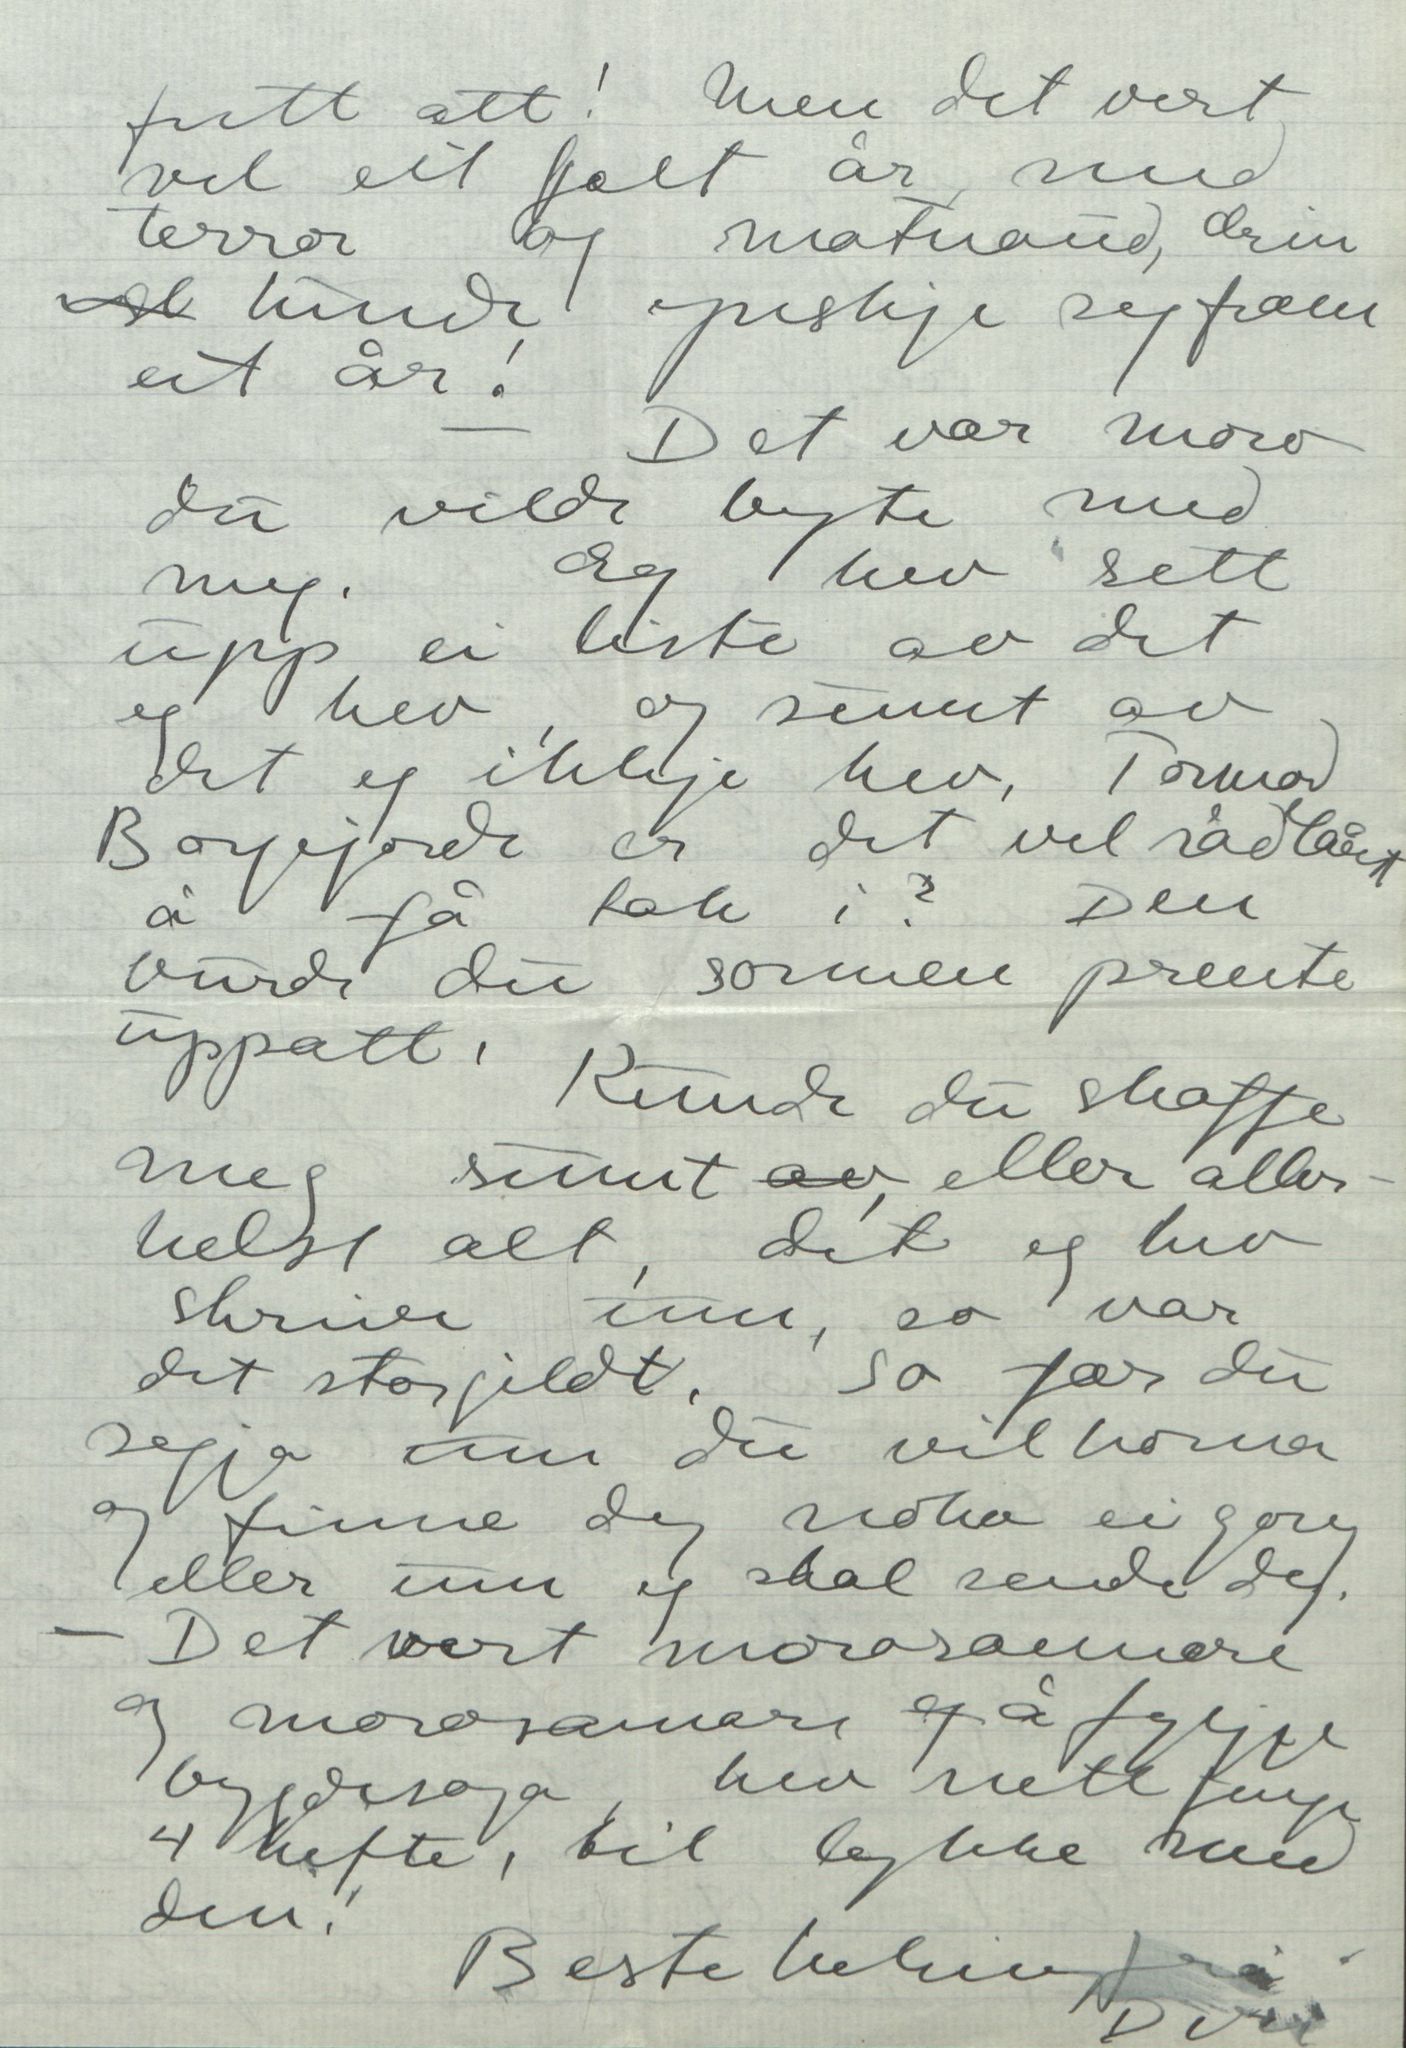 fritt att! Men det vert
vel eit fælt år, med
terror og matnaud, drin
kunde ynskje seg fram
eit år!
— Det var moro
du vilde byte med
meg. Eg hev sett
upp ei liste av det
eg hev, og sumt av
det eg ikkje hev. Tormod
Borgejorde er det vel rådlaust
å få tak i? Den
burde du sommen prente
uppatt. Kunde du skaffe
meg sumt av, eller aller-
helst alt, det eg hev
skrive um, so var
det storgildt. So fær du
segja um du vil koma
og finne deg noko ei gong
eller um eg skal sende deg.
— Det vert morosamare
og morosamare og å fylgje
bygdesoga, hev nett fenge
4 hefte, til lykke med
den!
Beste helsing frå